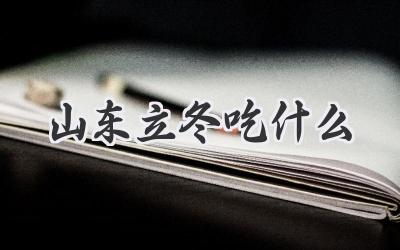 山东立冬吃什么